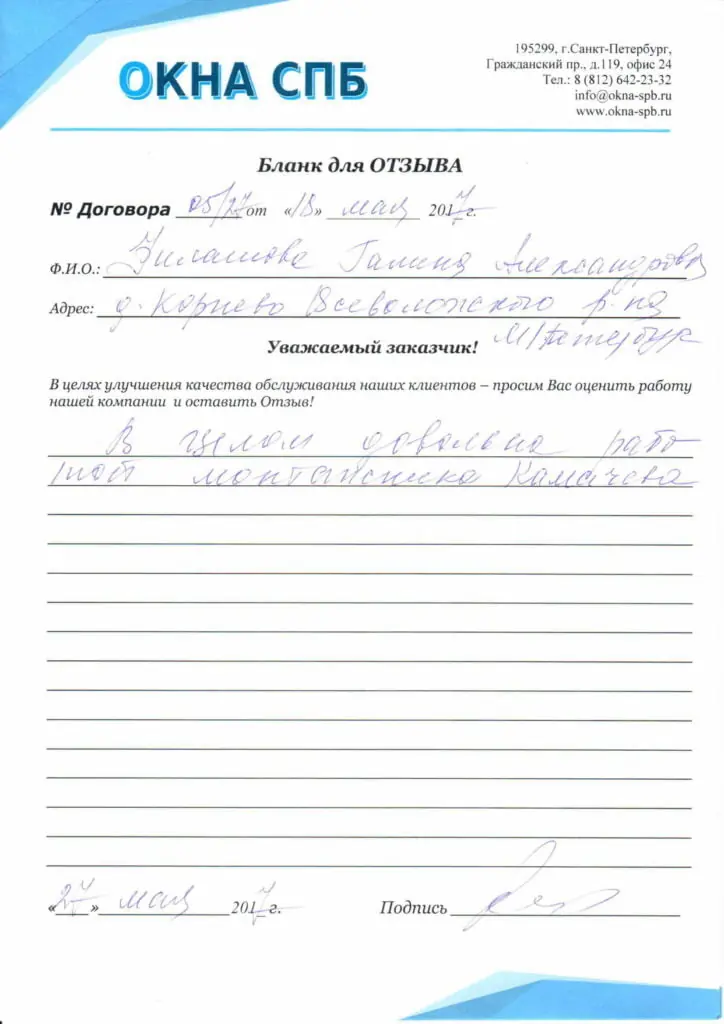 ОКНА СПБ
195299, г.Санкт-Петербург,
Гражданский пр., д.119, офис 24
Тел.: 8 (812) 642-23-32
info@okna-spb.ru
www.okna-spb.ru
Бланк для ОТЗЫВА
№ Договора 05/27 от «18» мая 2017 г.
Ф.И.О.: Галина Александровна
Адрес: д. Корнево Всеволожского р-на
Уважаемый заказчик!
В целях улучшения качества обслуживания наших клиентов – просим Вас оценить работу
нашей компании и оставить Отзыв!
В целом довольна рабо-
той монтажника Камачева
«27» мая 2017 г. Подпись